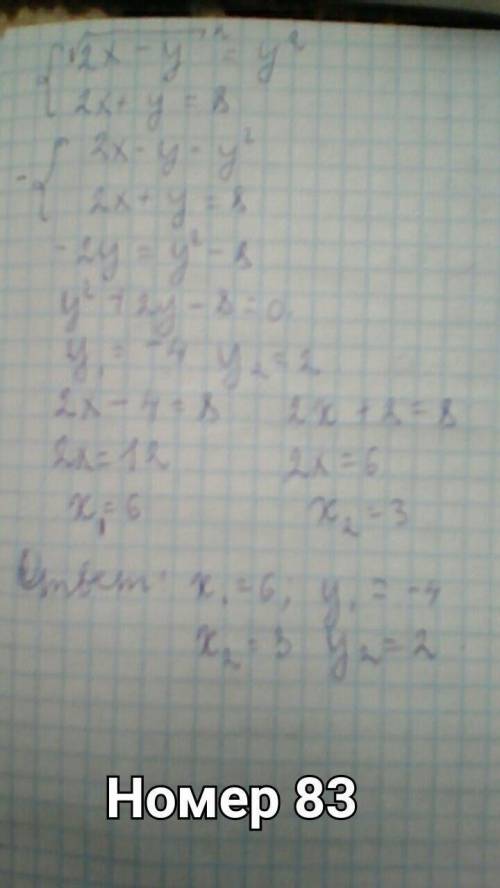 2x - y = y²
2x + y = 8
2x - y = y²
2x + y = 8
-2y = y² - 8
y² + 2y - 8 = 0
y₁ = -4 y₂ = 2
2x - 4 = 8 2x + 2 = 8
2x = 12 2x = 6
x₁ = 6 x₂ = 3
Ответ: x₁ = 6; y₁ = -4
x₂ = 3 y₂ = 2
Номер 83